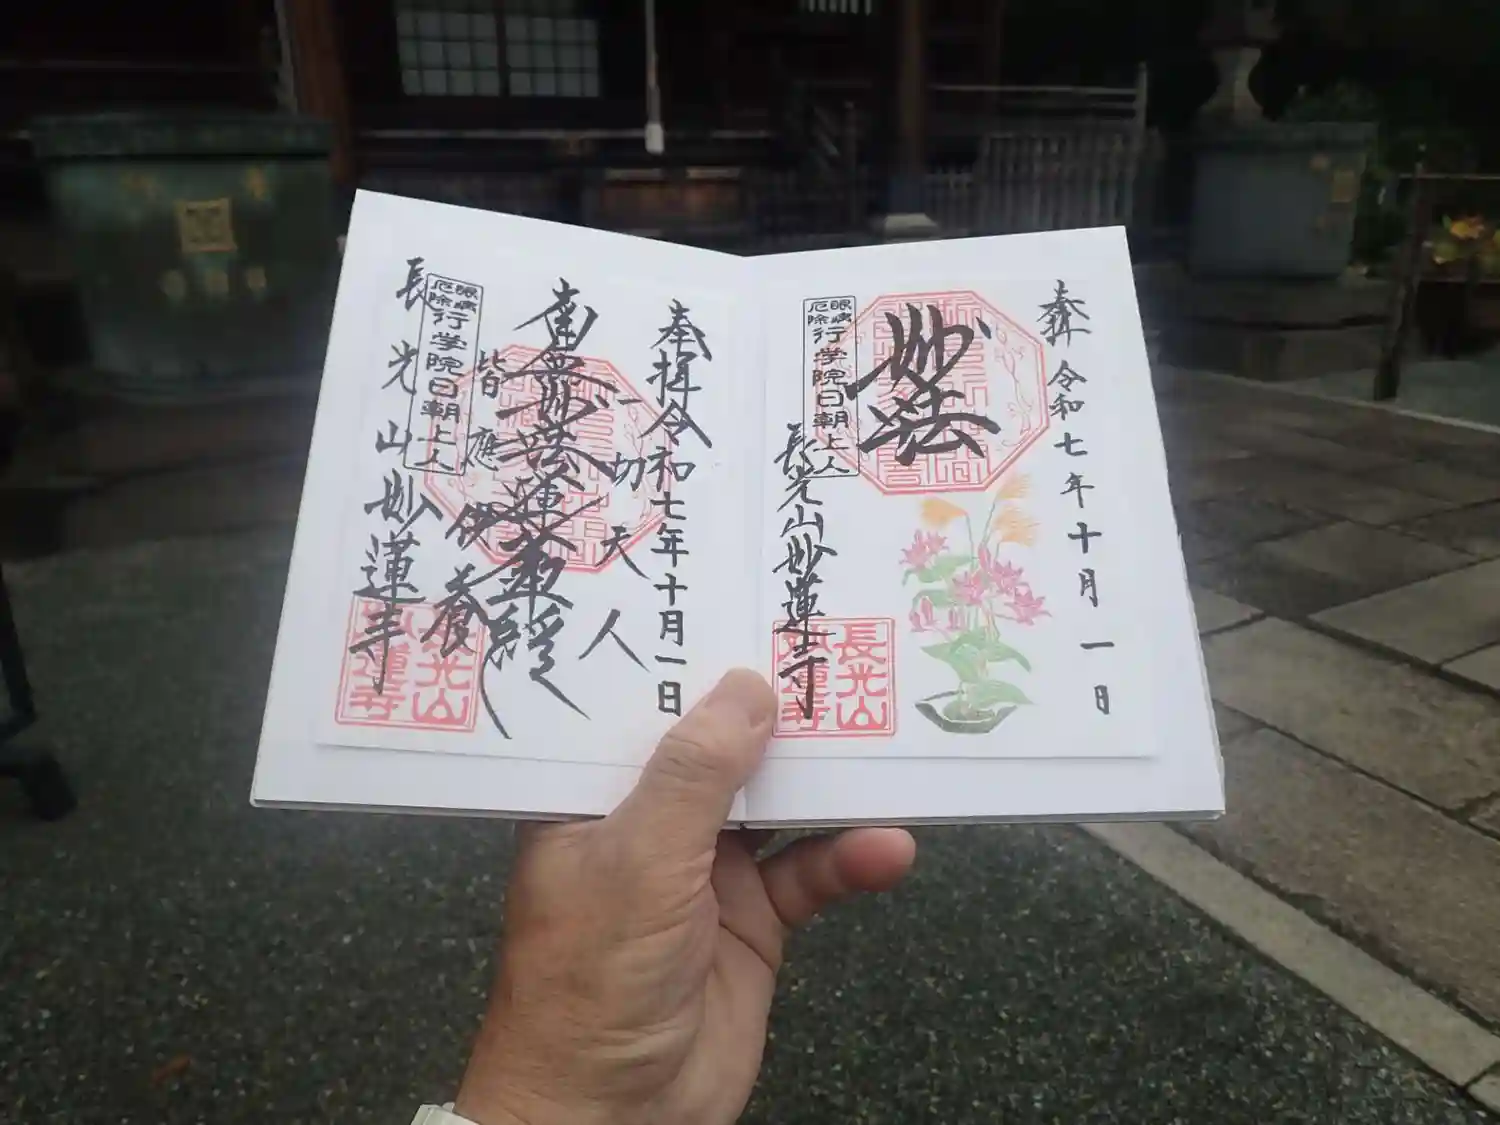 奉拝 令和七年十月一日
妙法
眼病
厄除
行学院日朝上人
長光山妙蓮寺
長光山
妙蓮寺
奉拝 令和七年十月一日
一切天人
南無妙法蓮華経
皆應供養
眼病
厄除
行学院日朝上人
長光山妙蓮寺
長光山
妙蓮寺